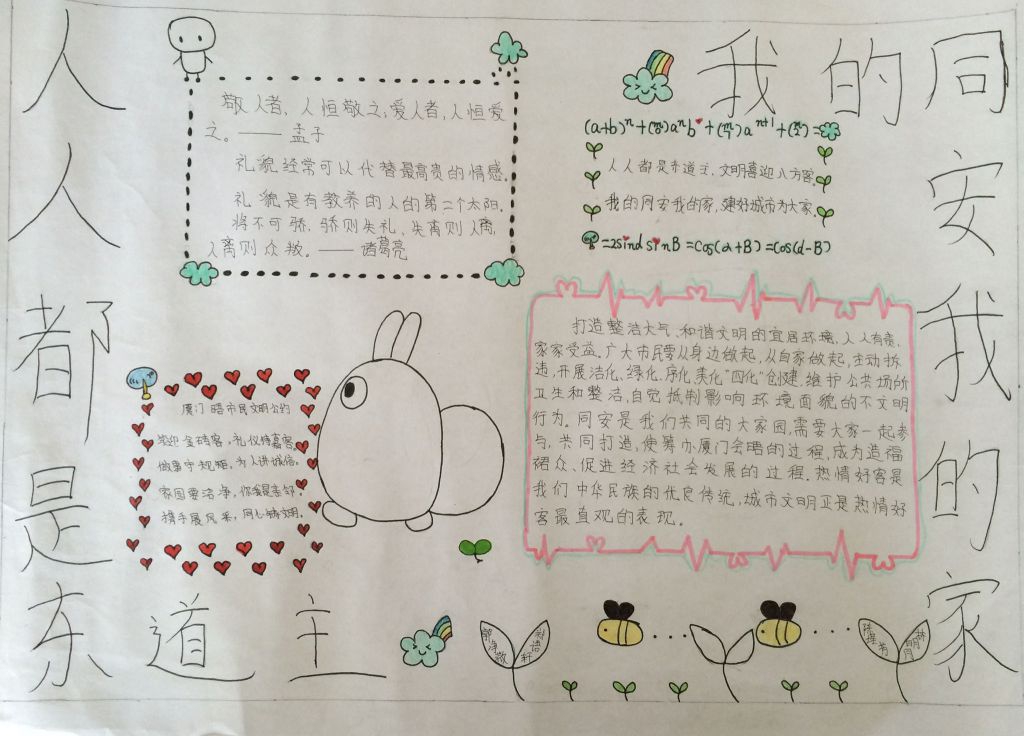 人人都是东道主
我的同安我的家
敬人者,人恒敬之;爱人者,人恒爱
之。——孟子
礼貌经常可以代替最高贵的情感。
礼貌是有教养的人的第二个太阳。
将不可骄,骄则失礼,失离则人离
人离则众叛。——诸葛亮
人人都是东道主,文明喜迎八方客.
我的同安我的家,建好城市为大家.
=2sindsinB=cos(a+B)=cos(d-B)
打造整洁大气、和谐文明的宜居环境,人人有责,
家家受益。广大市民要从身边做起,从自家做起,主动拆
违,开展洁化、绿化、序化、美化"四化"创建,维护公共场所
卫生和整洁,自觉抵制影响环境面貌的不文明
行为。同安是我们共同的大家园,需要大家一起参
与,共同打造,使筹办厦门会晤的过程,成为造福
裙众、促进经济社会发展的过程.热情好客是
我们中华民族的优良传统,城市文明正是热情好
客最直观的表现。
厦门晤市民文明公约
喜迎金砖客,礼仪待嘉宾。
做事守规矩,为人讲诚信。
家园要洁净,你我是芳邻。
携手展风采,同心铸文明。